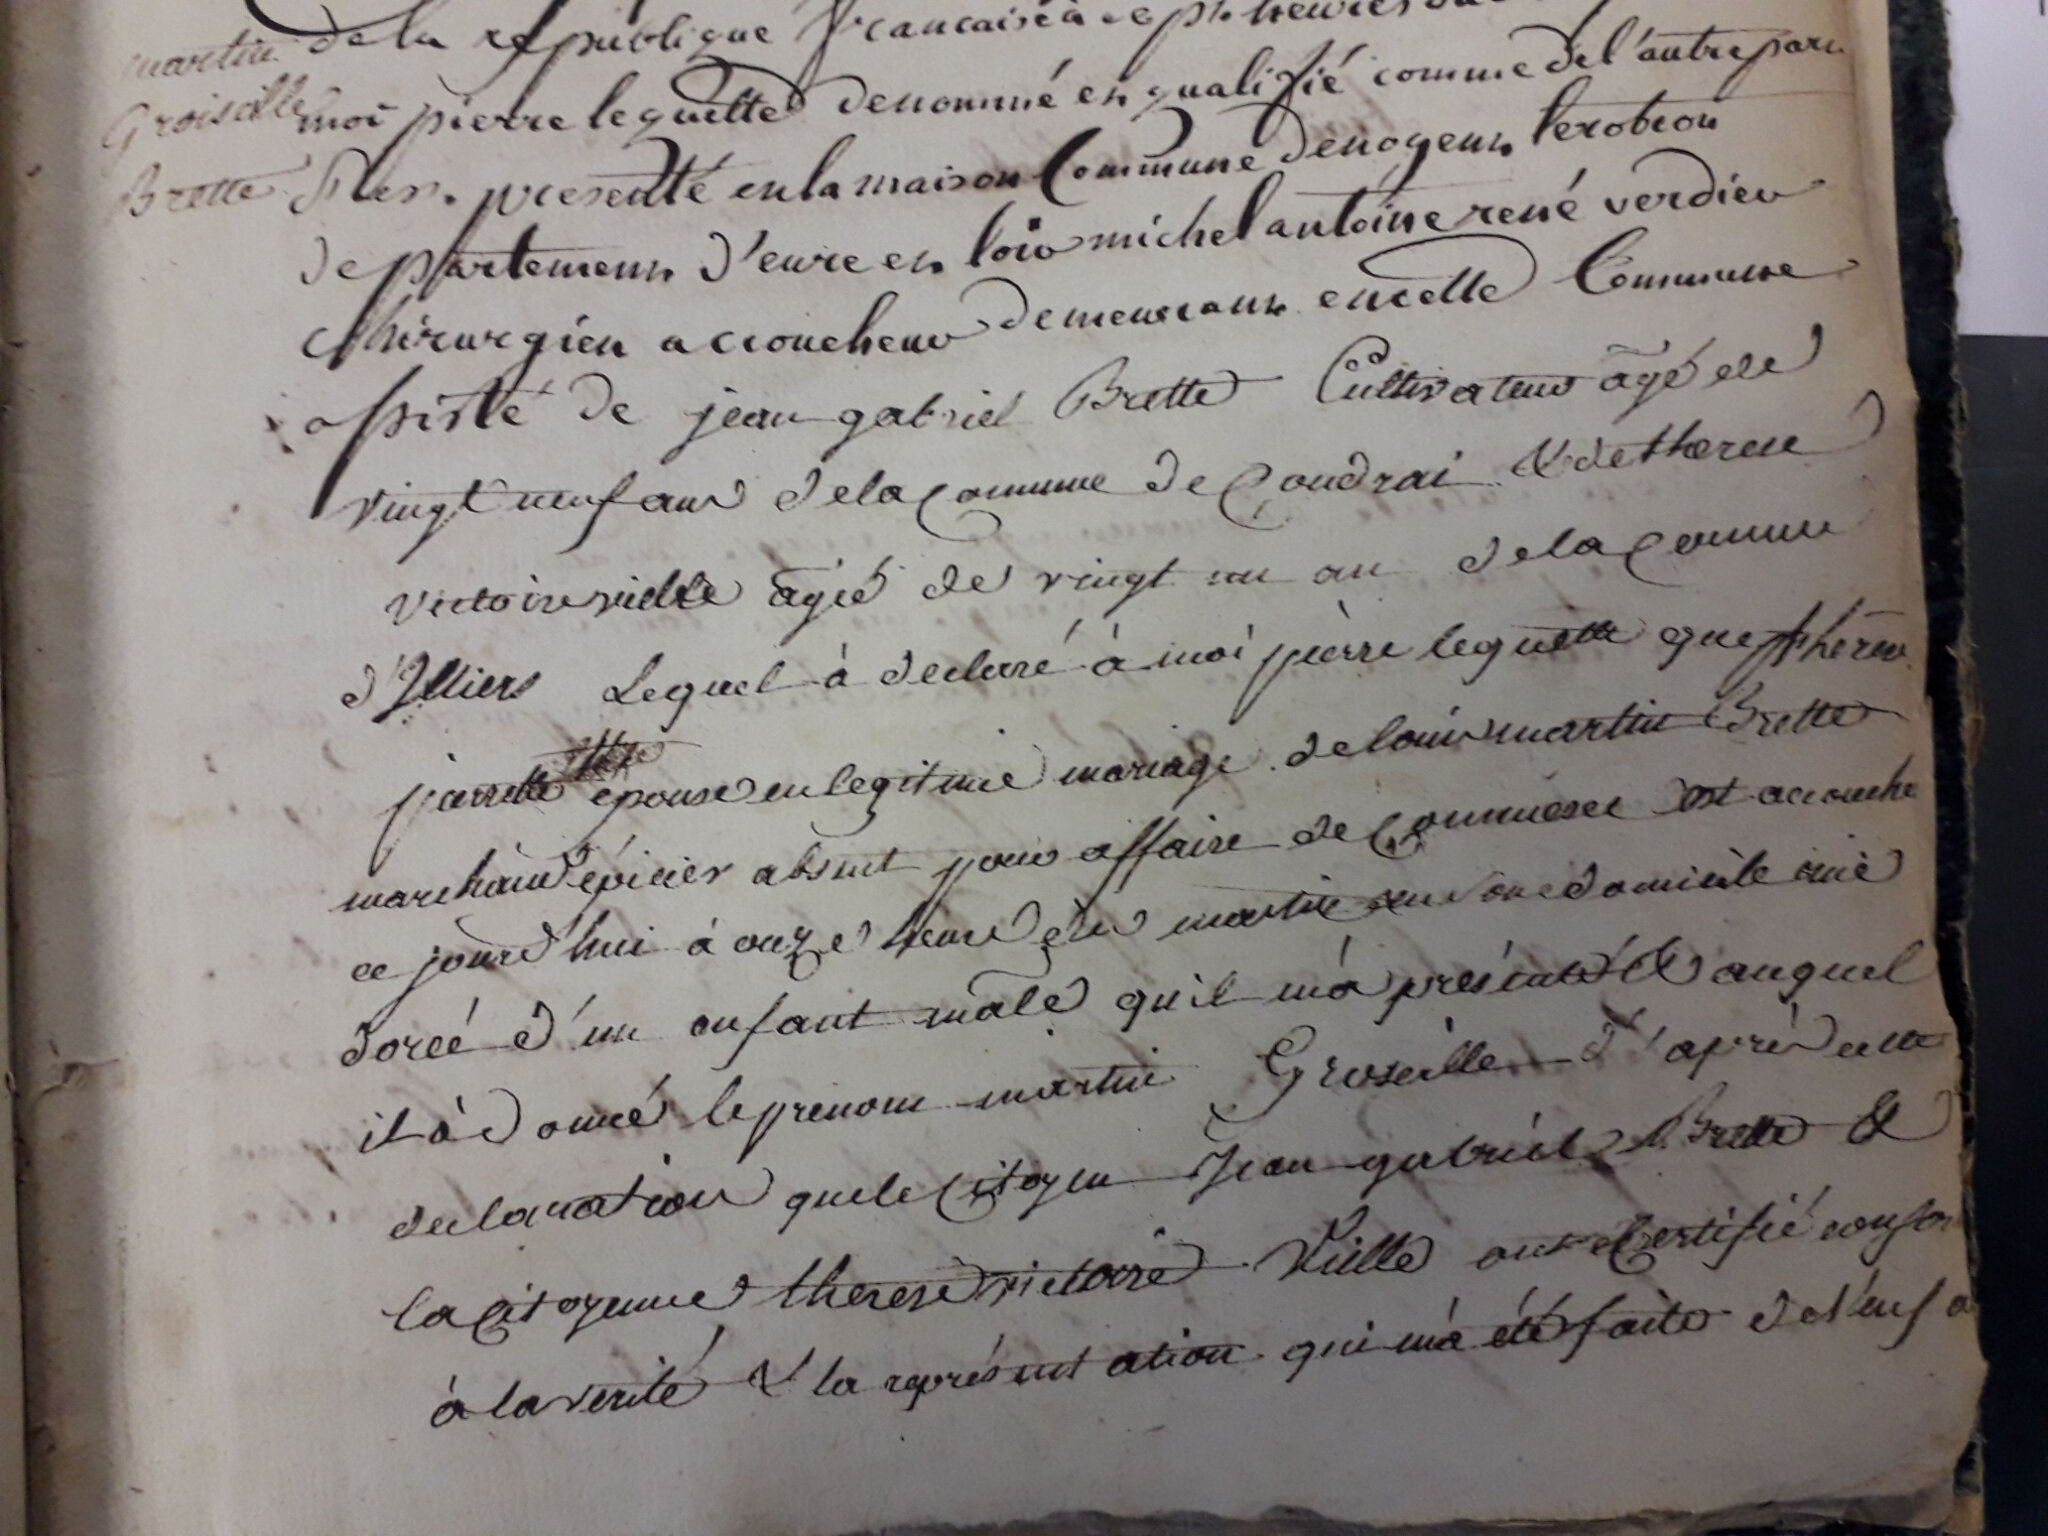 martin
Groiseille
Brette
de la republique francaise a sept heures du
moi pierre leguette denommé et qualifié comme de l'autre part
s'est presenté en la maison Commune de nogent lerotrou
departement d'eure et loir michel antoine rené verdier
chirurgien accoucheur demeurant en cette Commune
assisté de jean gabriel Brette Cultivateur âgé de
vingt neuf ans de la Commune de Coudrai & de therese
victoire vielle âgée de vingt un an de la Commune
d'Illiers Lequel à declaré à moi pierre leguette que therese
épouse en legitime mariage de louis martin Brette
marchand épicier absent pour affaire de Commerce est accouche
ce jourd'hui à onze heure du martin en son domicile
dorée d'un enfant mâle qu'il m'a présenté & auquel
il à donné le prenom martin Groseille d'après cette
declaration que le Citoyen Jean gabriel Brette &
la Citoyenne therese victoire Vielle ont Certifié confor
à la verité & la représentation qui m'a été faite de l'enfa